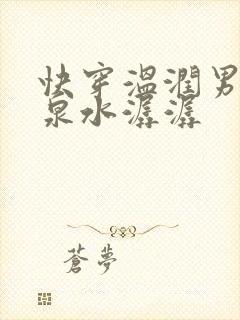 快穿溫潤男
泉水潺潺
蒼夢